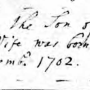 The Son o
Wife was born
emb. 1702.